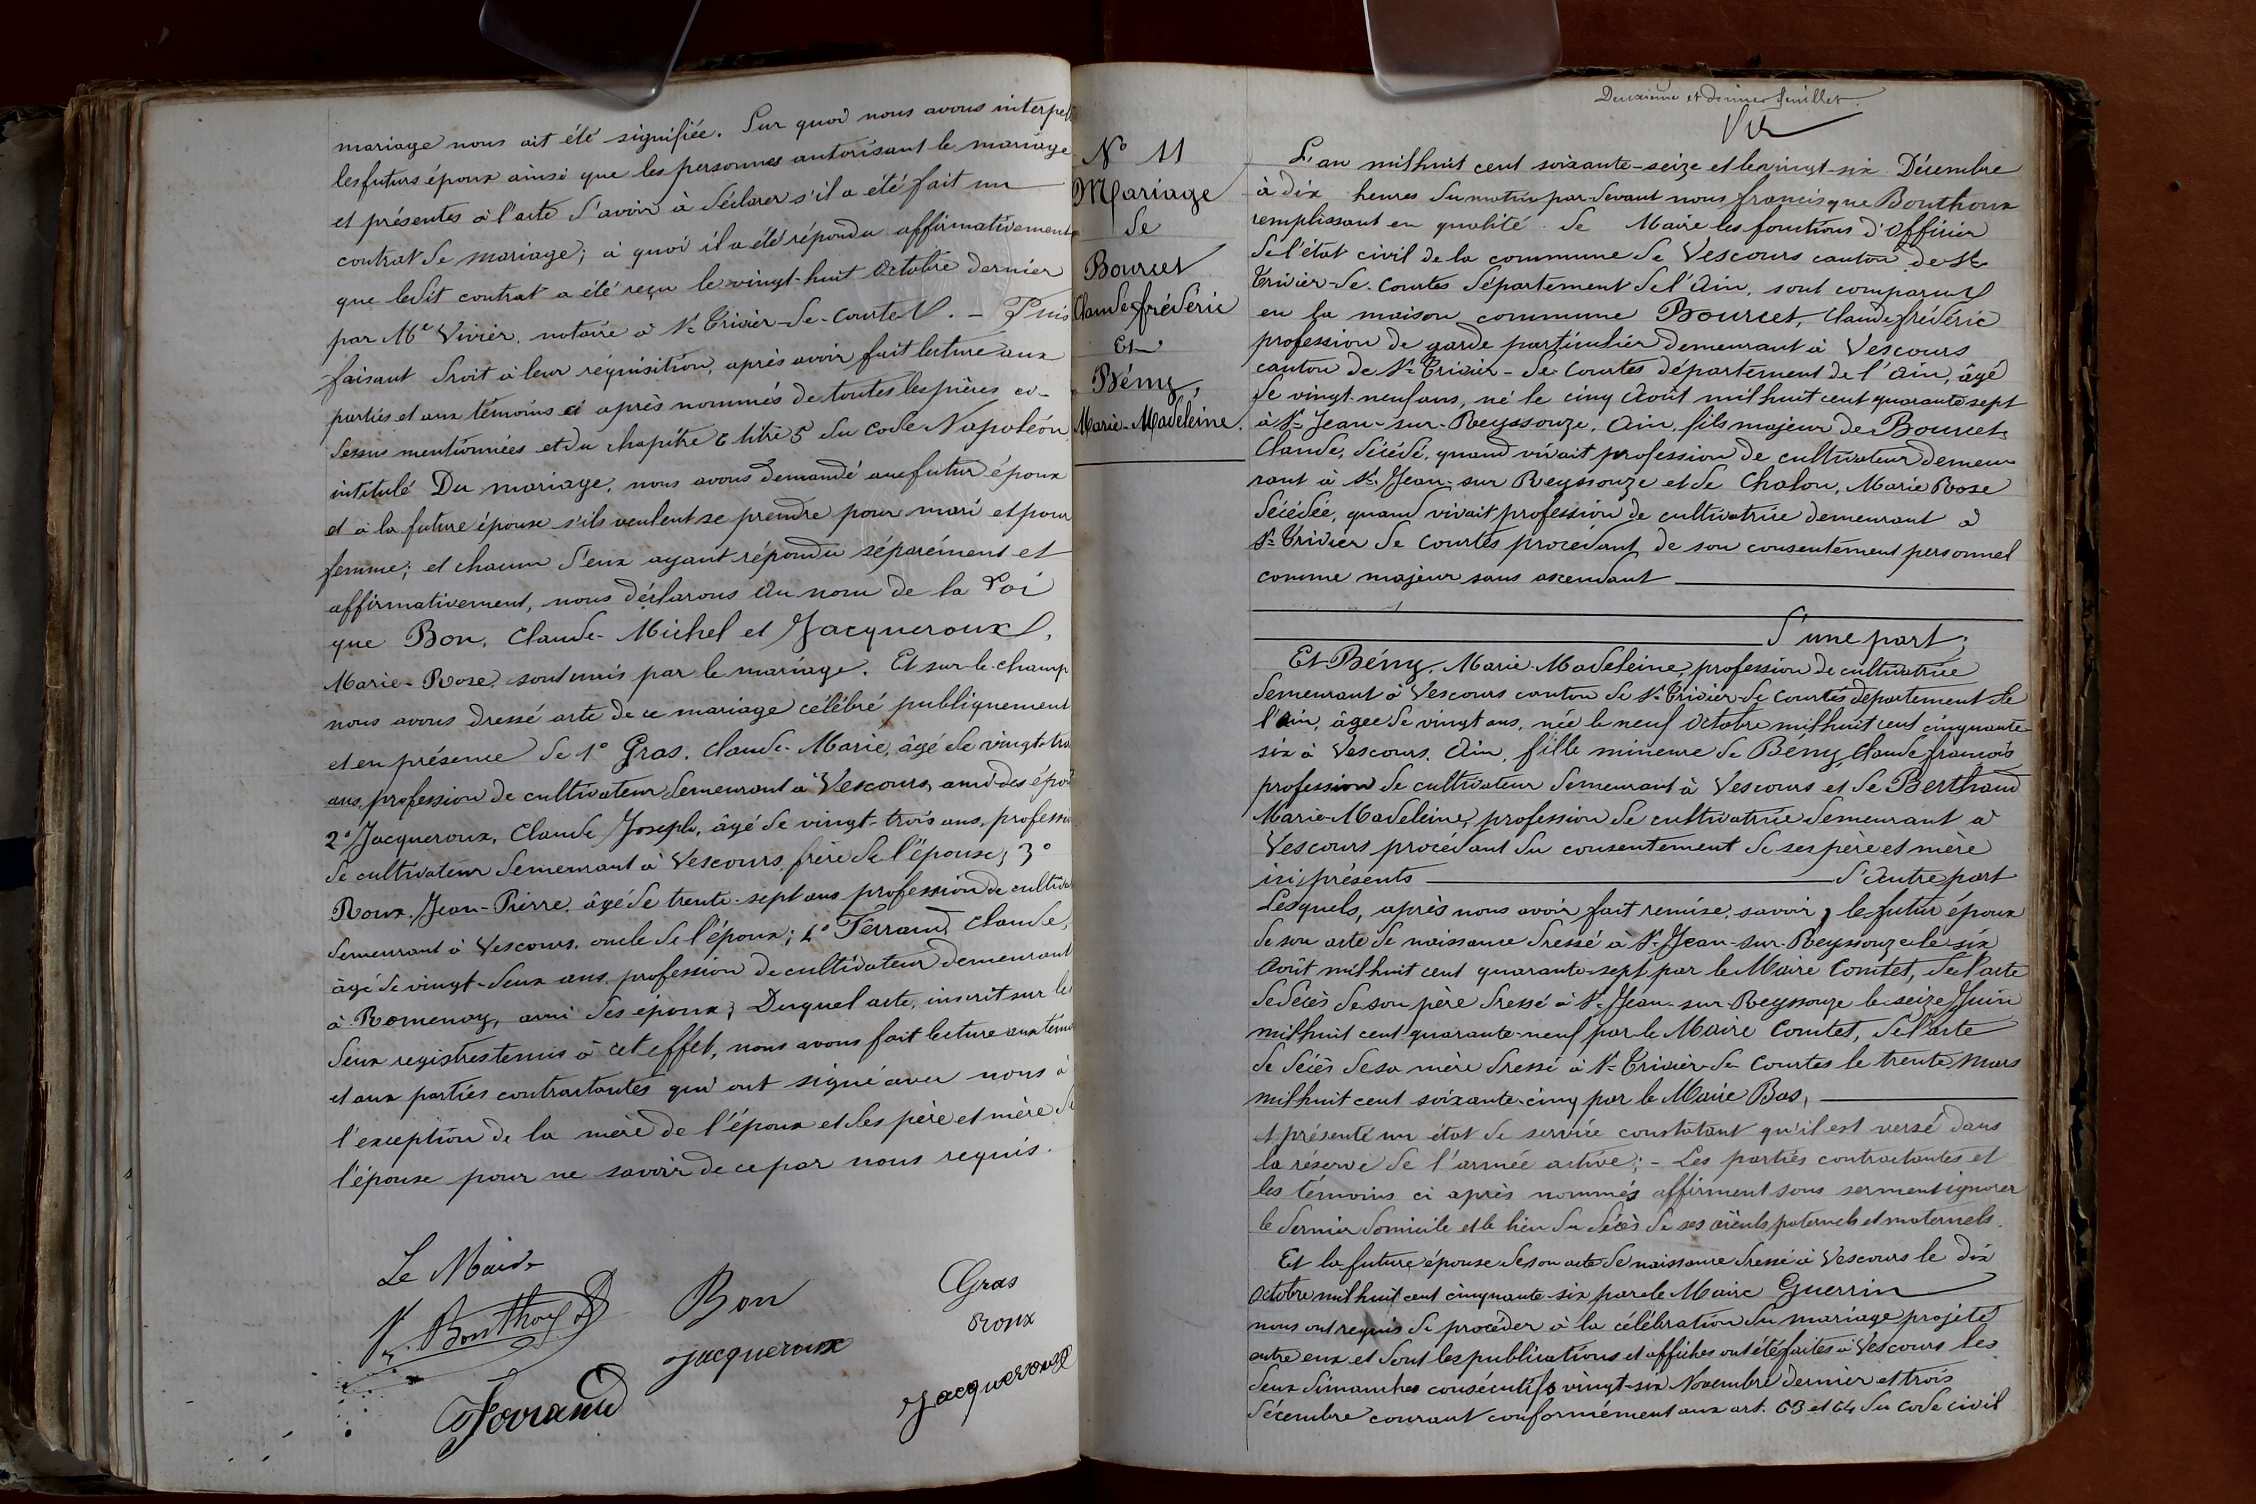 mariage nous ait été signifiée. Sur quoi nous avons interpel
les futurs époux ainsi que les personnes autorisant le mariage
et présentes à l'acte d'avoir à déclarer s'il a été fait un
contrat de mariage; à quoi il a été répondu affirmativement
que ledit contrat a été reçu le vingt-huit Octobre dernier
par Me Vivier, notaire à St Trivier-de-Courtes. — Puis
faisant droit à leur réquisition, après avoir fait lecture aux
parties et aux témoins ci après nommés de toutes les pièces ci-
dessus mentionnées et du chapitre 6 titre 5 du Code Napoléon
intitulé Du mariage, nous avons demandé au futur époux
et à la future épouse s'ils veulent se prendre pour mari et pour
femme; et chacun d'eux ayant répondu séparément et
affirmativement, nous déclarons Au nom de la Loi
que Bon, Claude-Michel et Jacqueroux,
Marie-Rose, sont unis par le mariage. Et sur-le-champ
nous avons dressé acte de ce mariage célébré publiquement
et en présence de 1° Gras, Claude-Marie, âgé de vingt-tro
ans, profession de cultivateur demeurant à Vescours, ami des épou
2° Jacqueroux, Claude Joseph, âgé de vingt-trois ans, professi
de cultivateur demeurant à Vescours, frère de l'épouse; 3°
Roux, Jean-Pierre, âgé de trente-sept ans profession de cultiva
demeurant à Vescours, oncle de l'époux; 4° Ferrand Claude,
âgé de vingt-deux ans, profession de cultivateur demeurant
à Romenay, ami des époux; Duquel acte, inscrit sur les
deux registres tenus à cet effet, nous avons fait lecture aux témo
et aux parties contractantes qui ont signé avec nous à
l'exception de la mère de l'époux et des père et mère de
l'épouse pour ne savoir de ce par nous requis.
Le Maire
F. Bonthoux
Bon
Gras
Roux
jacqueroux
Jacqueroux
Ferrand
Deuxième et dernier feuillet
N° 11
Mariage
de
Bourcet
Claude frédéric
Et
Bémy,
Marie-Madeleine.
L'an mil huit cent soixante-seize et le vingt-six Décembre
à dix heures du matin par-devant nous francisque Bonthoux
remplissant en qualité de Maire les fonctions d'Officier
de l'état civil de la commune de Vescours canton de St
Trivier-de-Courtes département de l'Ain, sont comparus
en la maison commune Bourcet, Claude frédéric
profession de garde particulier demeurant à Vescours
canton de St Trivier-de-Courtes département de l'Ain, âgé
de vingt-neuf ans, né le cinq Août mil huit cent quarante sept
à St Jean-sur-Reyssouze, Ain, fils majeur de Bourcet,
Claude, décédé, quand vivait profession de cultivateur demeu
rant à St Jean-sur Reyssouze et de Chalon, Marie Rose
décédée, quand vivait profession de cultivatrice demeurant à
St Trivier de Courtes procédant de son consentement personnel
comme majeur sans ascendant
d'une part;
Et Bémy, Marie-Madeleine, profession de cultivatrice
demeurant à Vescours canton de St Trivier-de Courtes département de
l'Ain, âgée de vingt ans, née le neuf Octobre mil huit cent cinquante
six à Vescours, Ain, fille mineure de Bémy Claude françois
profession de cultivateur demeurant à Vescours et de Berthaud
Marie-Madeleine, profession de cultivatrice demeurant à
Vescours procédant du consentement de ses père et mère
ici présents d'autre part
Lesquels, après nous avoir fait remise, savoir, le futur époux
de son acte de naissance dressé à St Jean-sur-Reyssouze le six
Août mil huit cent quarante-sept par le Maire Comtet, de l'acte
de décès de son père dressé à St Jean-sur-Reyssouze le seize Juin
mil huit cent quarante-neuf par le Maire Comtet, de l'acte
de décès de sa mère dressé à St Trivier-de Courtes le trente Mars
mil huit cent soixante-cinq par le Maire Bas,
et présenté un état de service constatant qu'il est versé dans
la réserve de l'armée active; - Les parties contractantes et
les témoins ci après nommés affirment sous serment ignorer
le dernier domicile et le lieu du décès de ses aïeuls paternels et maternels.
Et la future épouse de son acte de naissance dressé à Vescours le dix
Octobre mil huit cent cinquante-six par le Maire Guerrin
nous ont requis de procéder à la célébration du mariage projeté
entre eux et dont les publications et affiches ont été faites à Vescours les
deux dimanches consécutifs vingt-six Novembre dernier et trois
décembre courant conformément aux art. 63 et 64 du Code civil